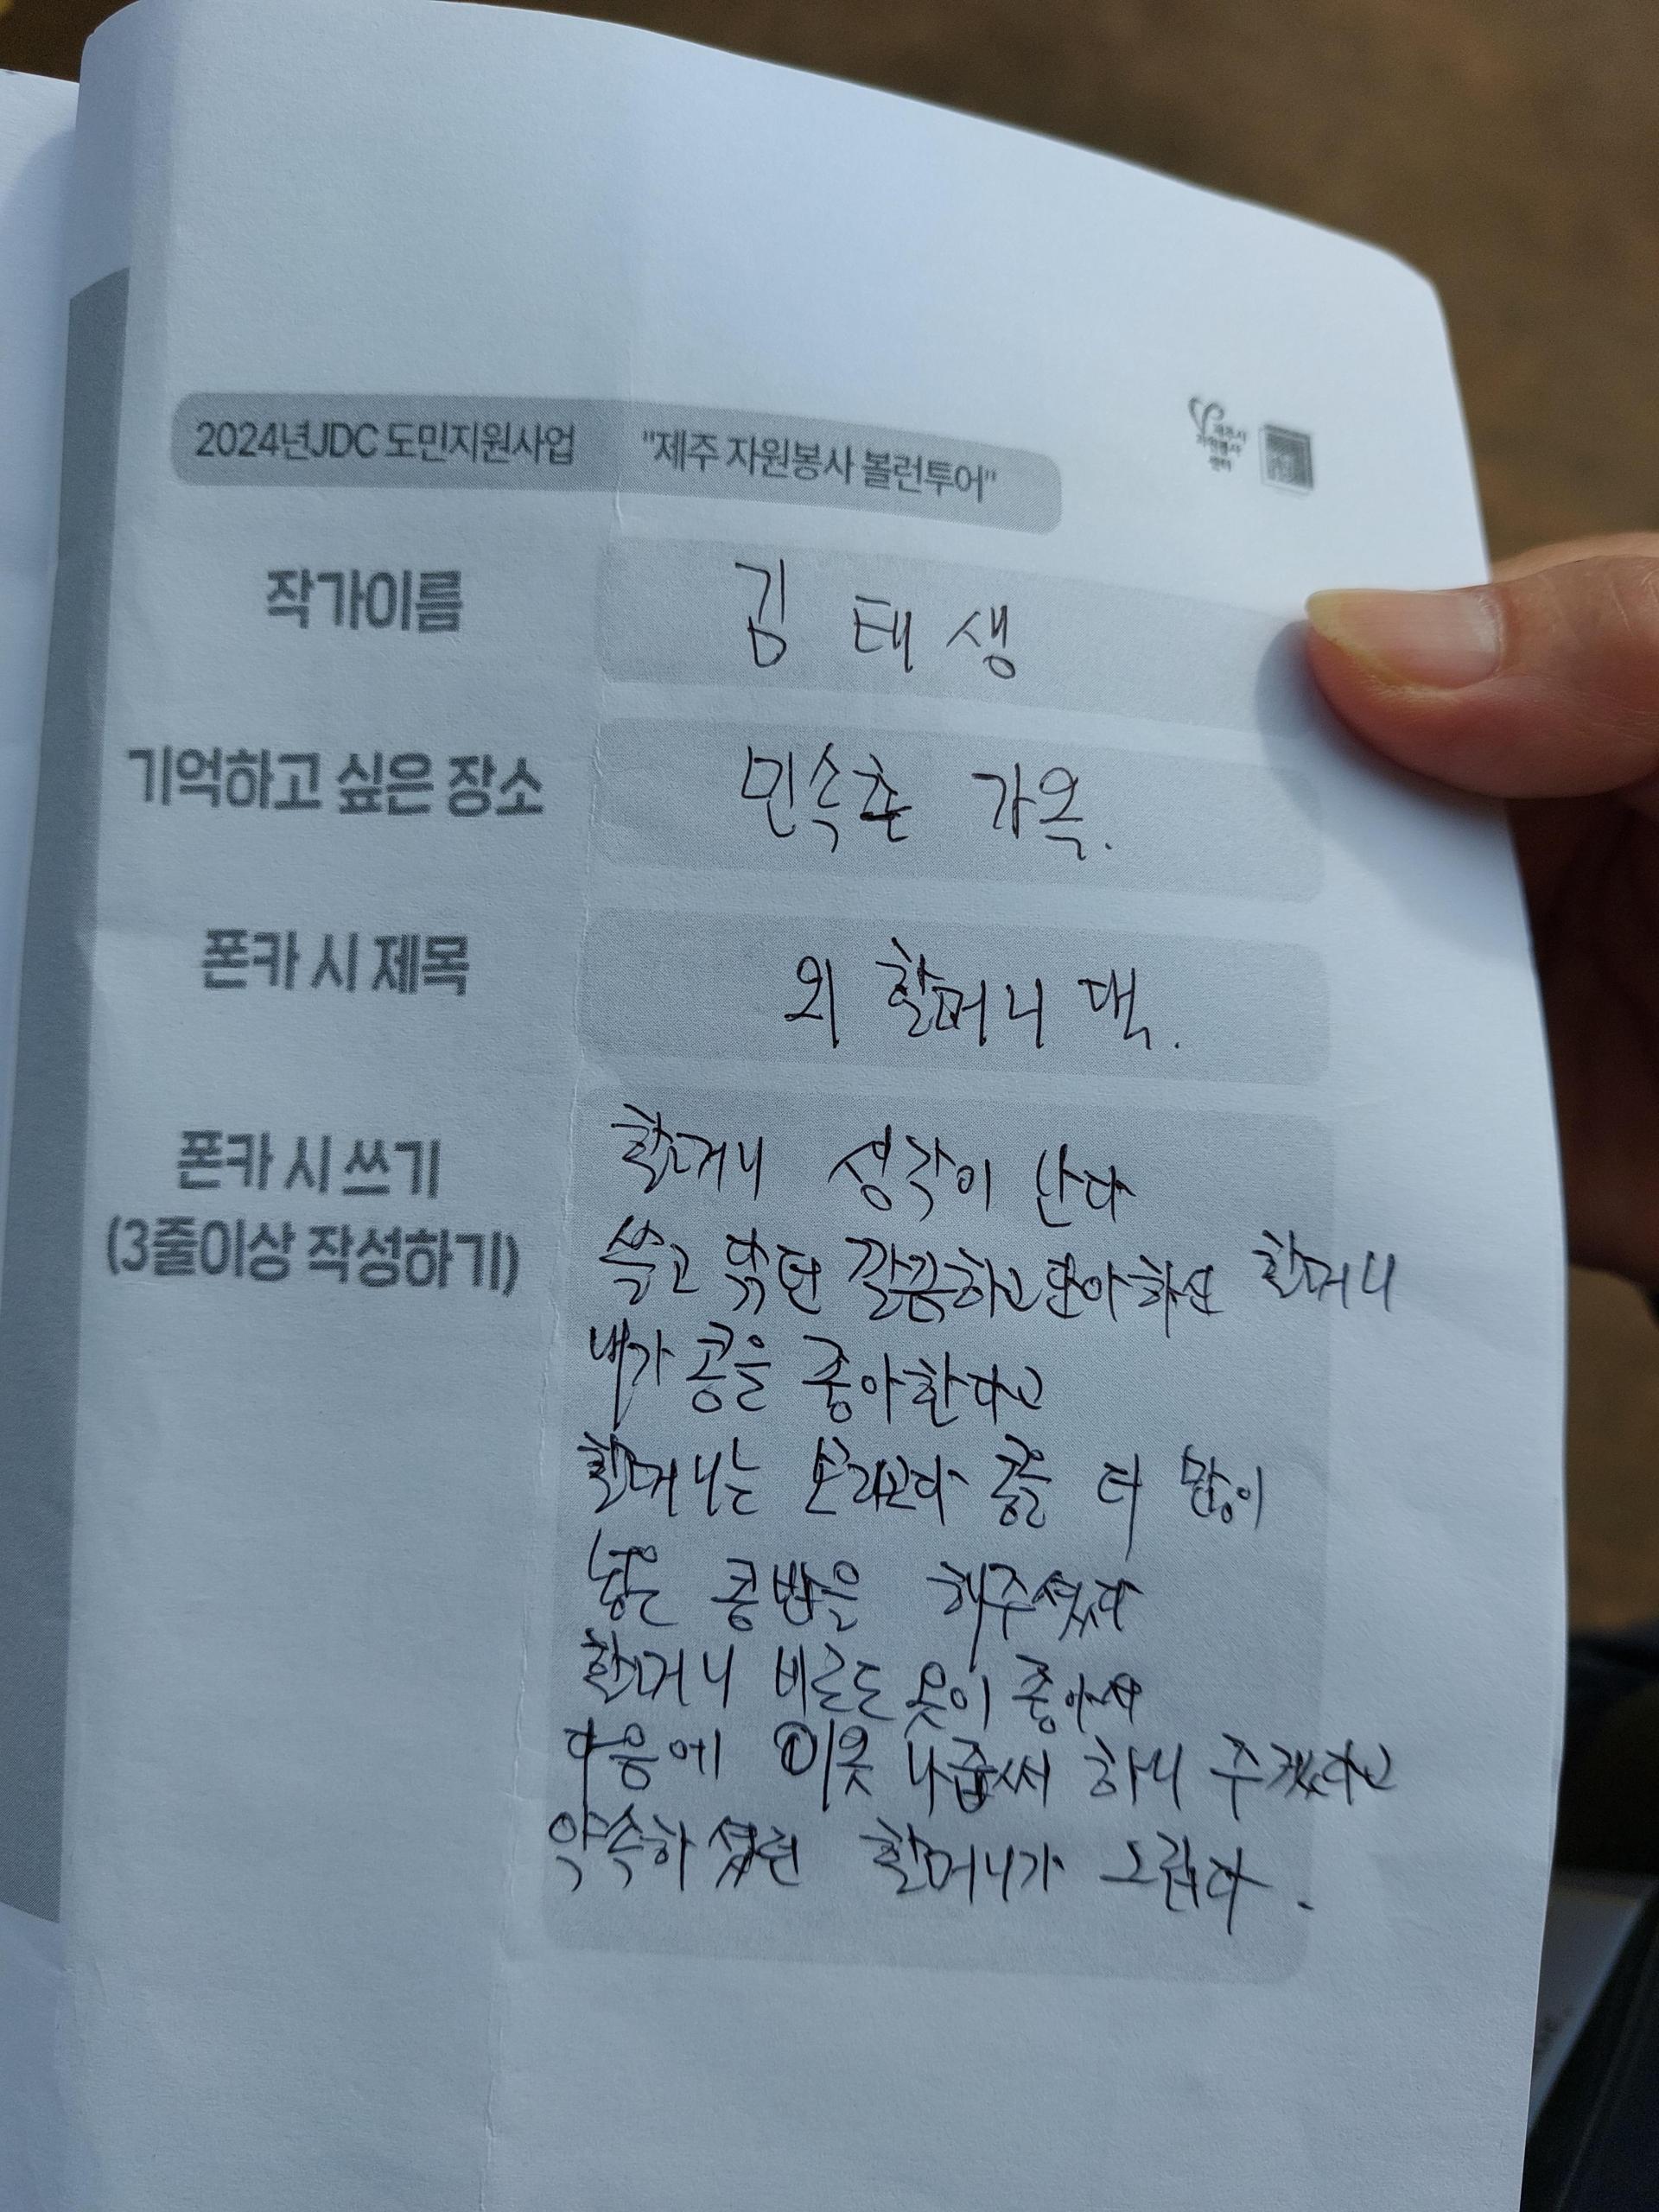 2024년JDC 도민지원사업 "제주 자원봉사 볼런투어"
제주시
자원봉사
센터
작가이름 김 태 생
기억하고 싶은 장소 민속촌 가옥.
폰카 시 제목 외 할머니 댁.
폰카 시 쓰기
(3줄이상 작성하기)
할머니 생각이 난다
쓸고 닦던 깔끔하고 할머니
내가 콩을 좋아한다고
할머니는 보리보다 콩을 더 많이
놓은 콩밥을 해주셨다
할머니 비로드 옷이 좋아서
다음에 이옷 하나 주겠다고
약속하셨던 할머니가 그립다.